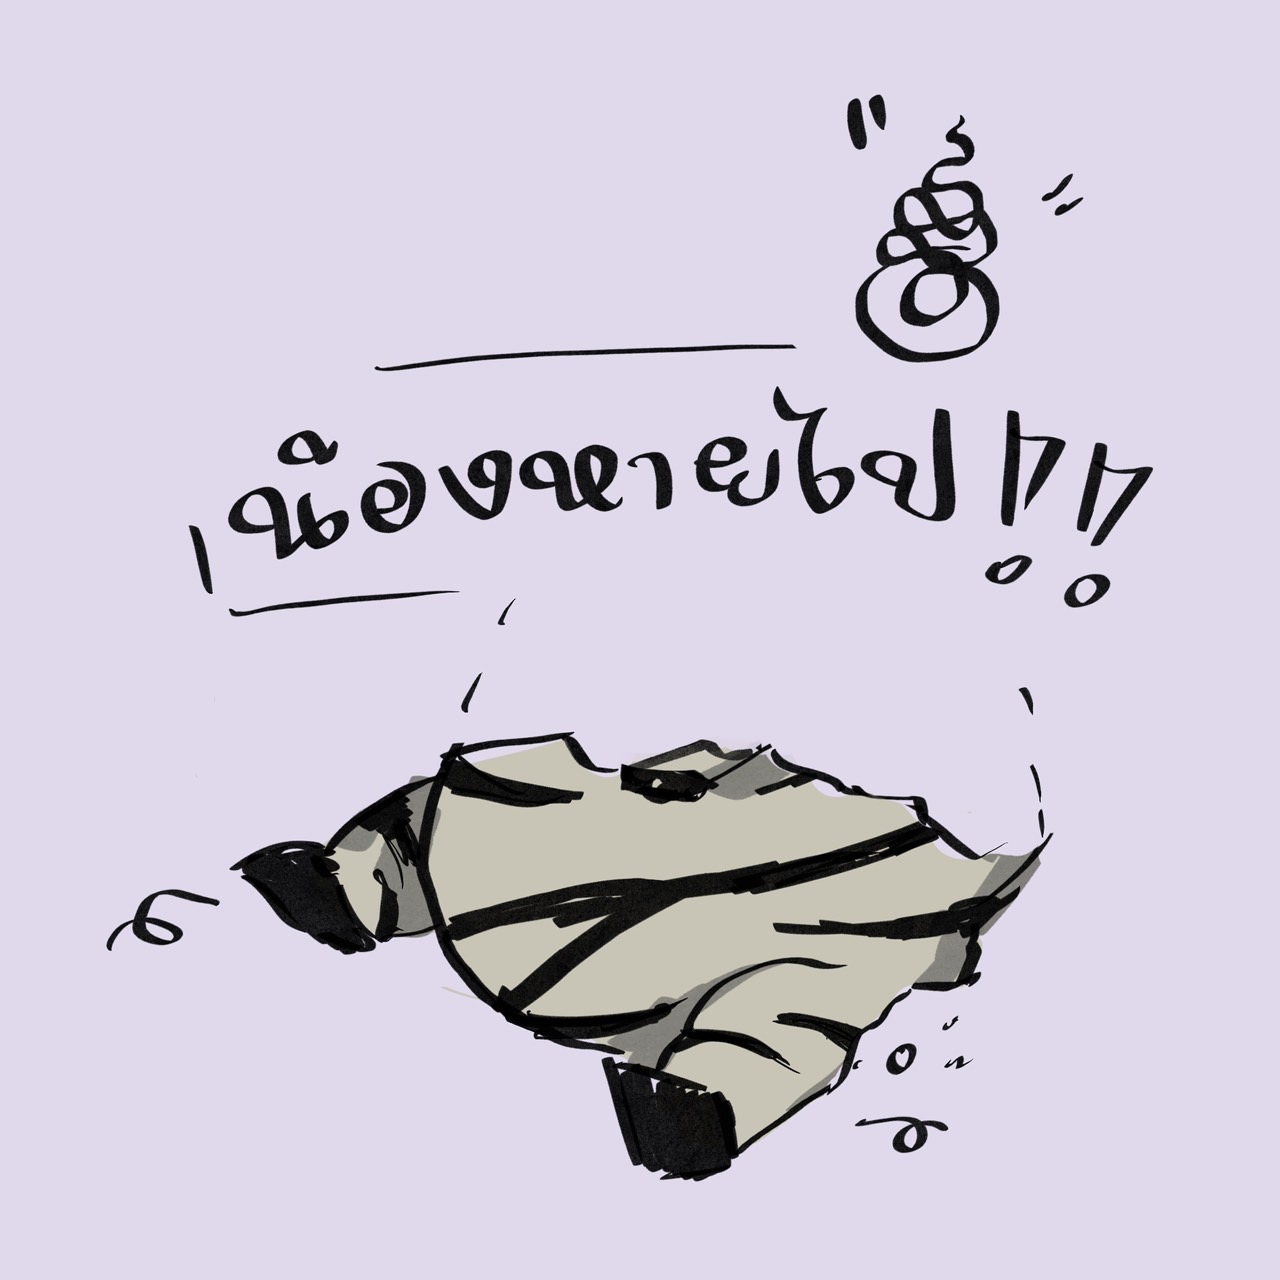 น้องหายไป!!